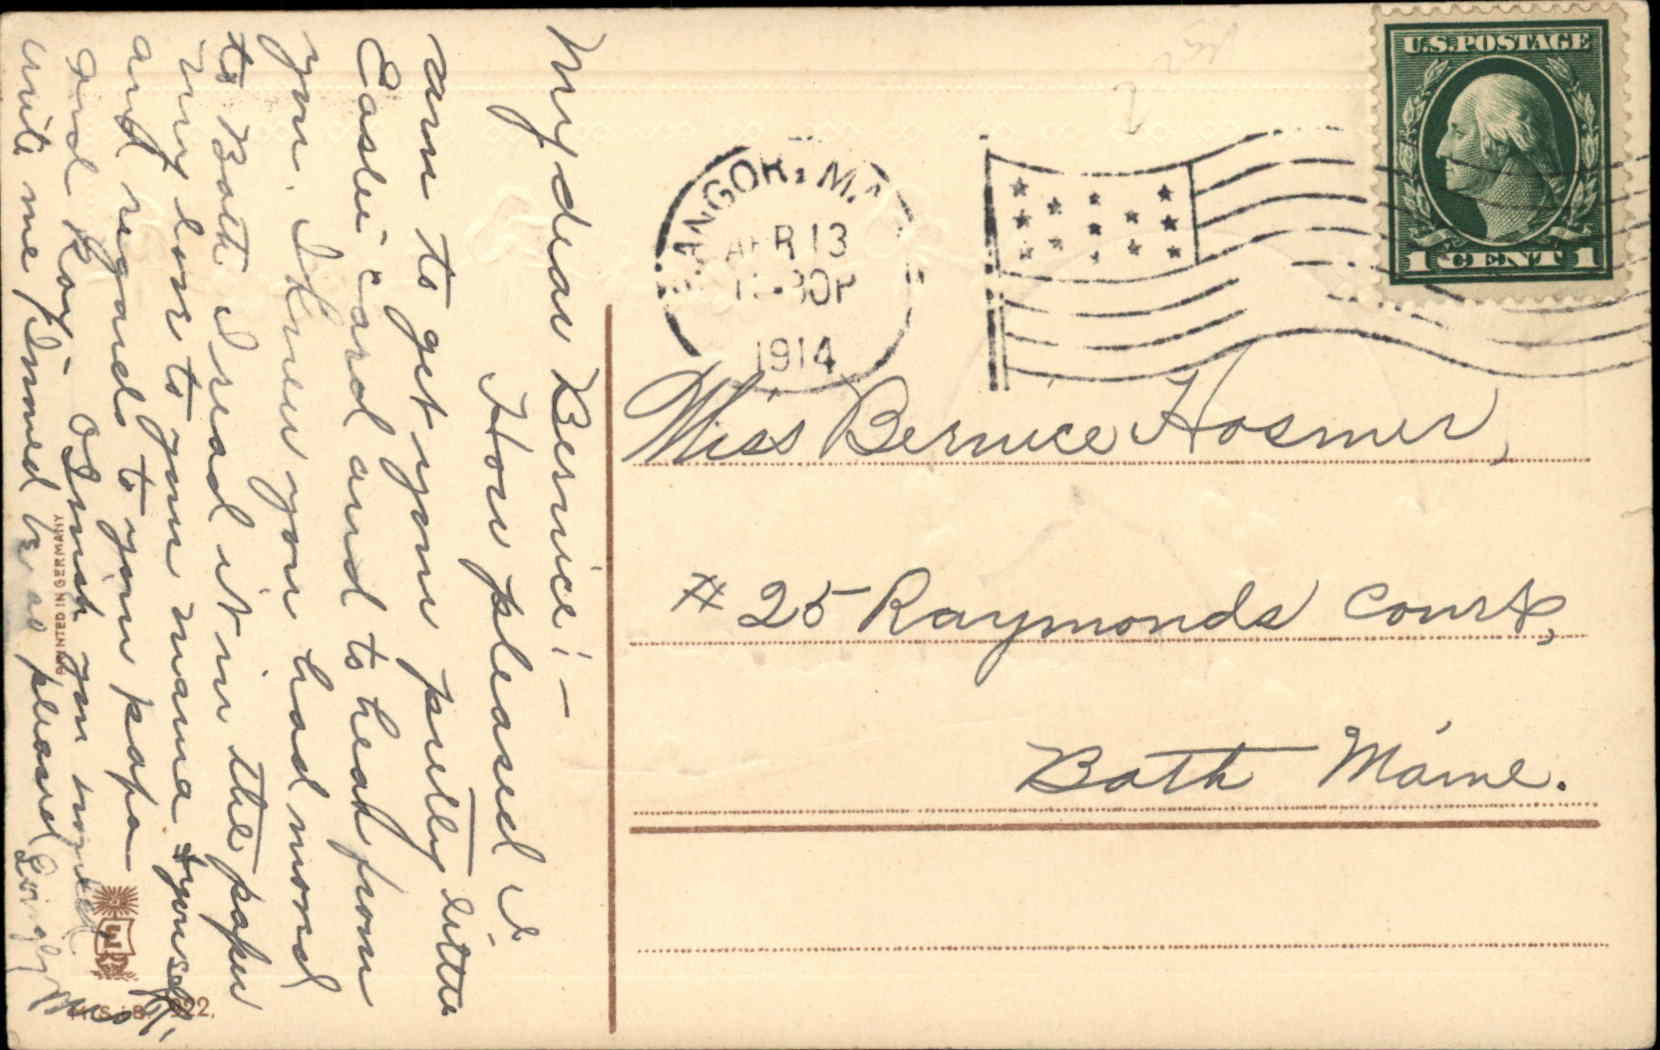 My dear Bernice:-
How pleased I
am to get your pretty little
Easter card and to hear from
you. I knew you had moved
to Bath I read it in the paper
my love to your mama & yourself,
and regards to your papa
and Ray. I wish you would
write me, I would be so pleased
Lovingly
PRINTED IN GERMANY
922.
U.S. POSTAGE
1 CENT 1
BANGOR, ME
APR 13
30P
1914
Miss Bernice Hosmer,
# 25 Raymonds Court,
Bath Maine.